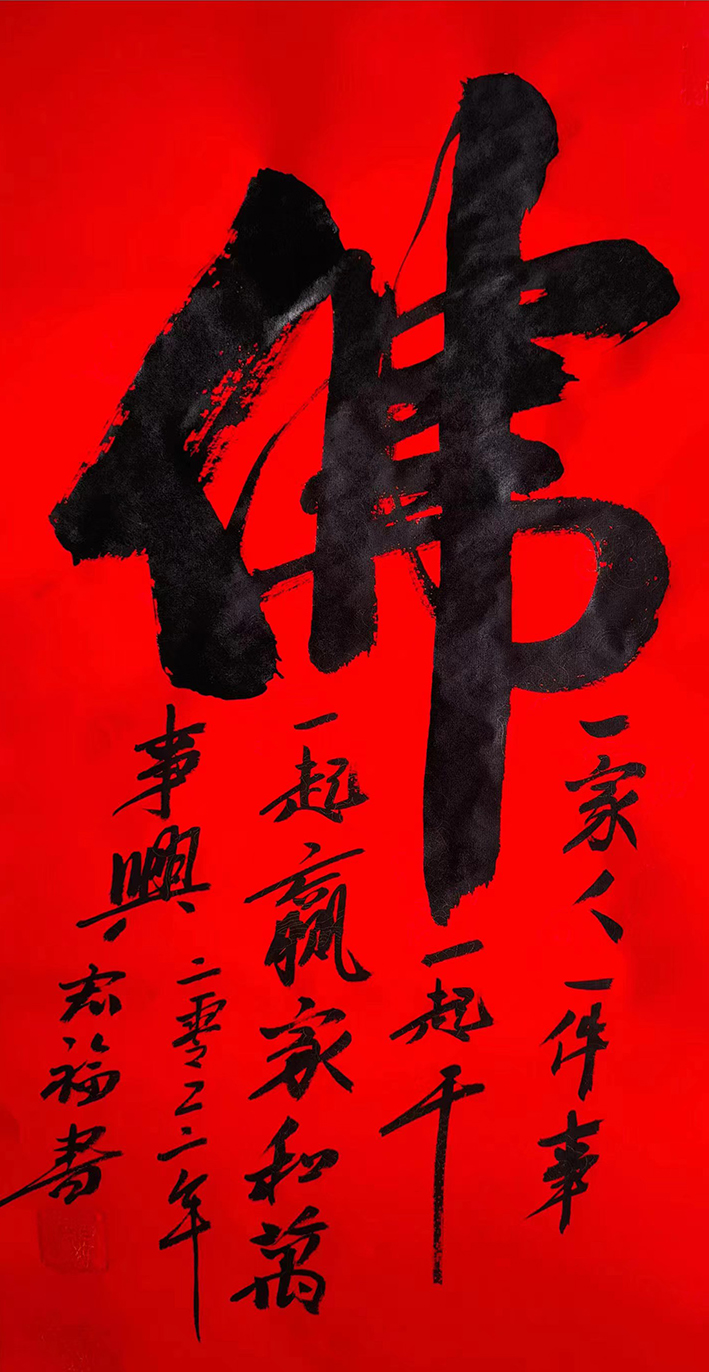 佛
一家人一件事
一起干
一起赢家和萬
事興
二零二二年
宏福書